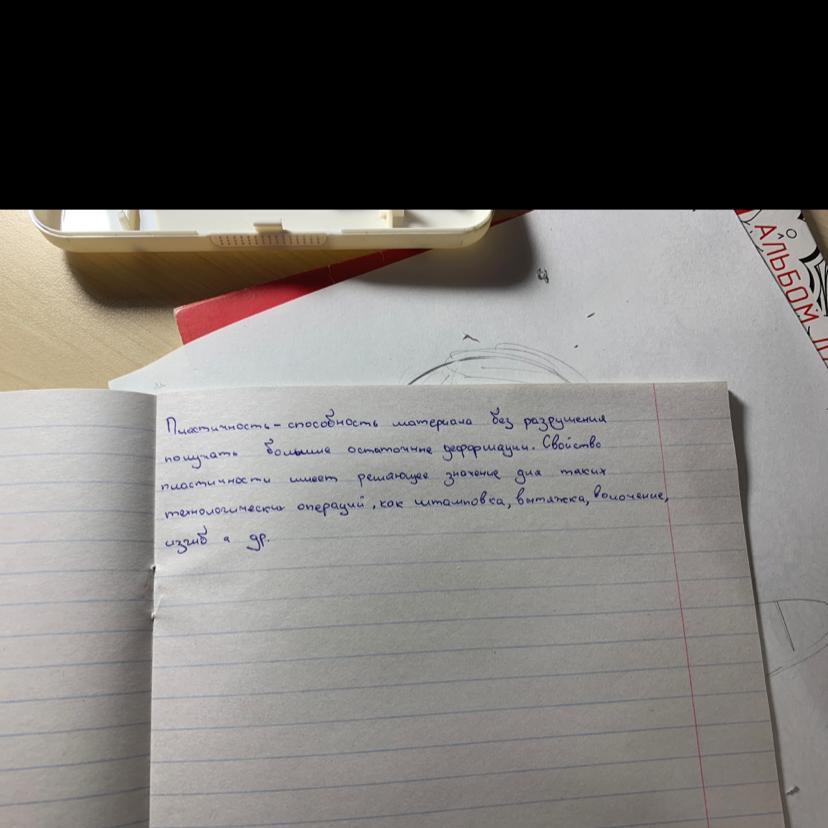 АЛЬБОМ
Пластичность - способность материала без разрушения
получать большие остаточные деформации. Свойство
пластичности имеет решающее значение для таких
технологических операций, как штамповка, вытяжка, волочение,
изгиб и др.